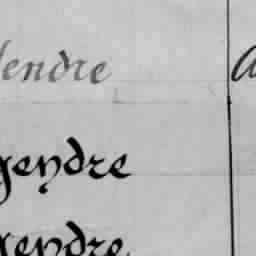 gendre a
gendre
gendre